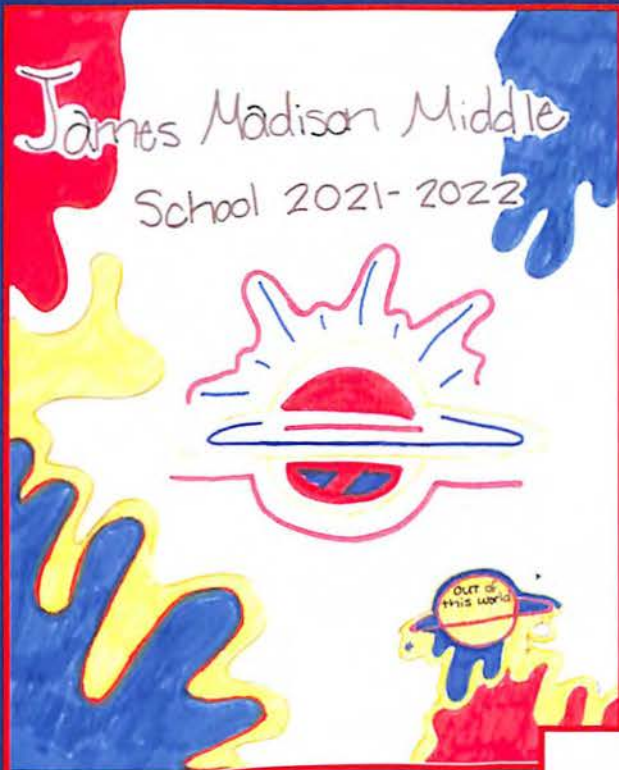 James Madison Middle
School 2021-2022
OUT of
this world